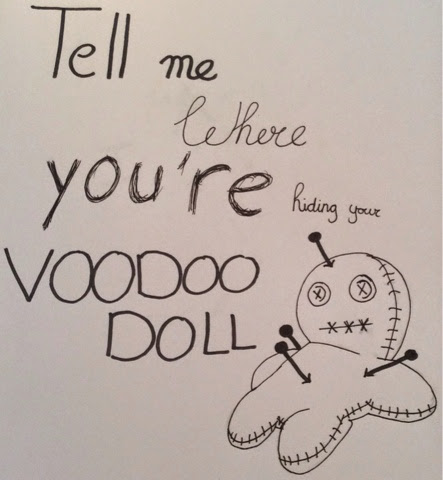 Tell me
Where
you're hiding your
VOODOO
DOLL